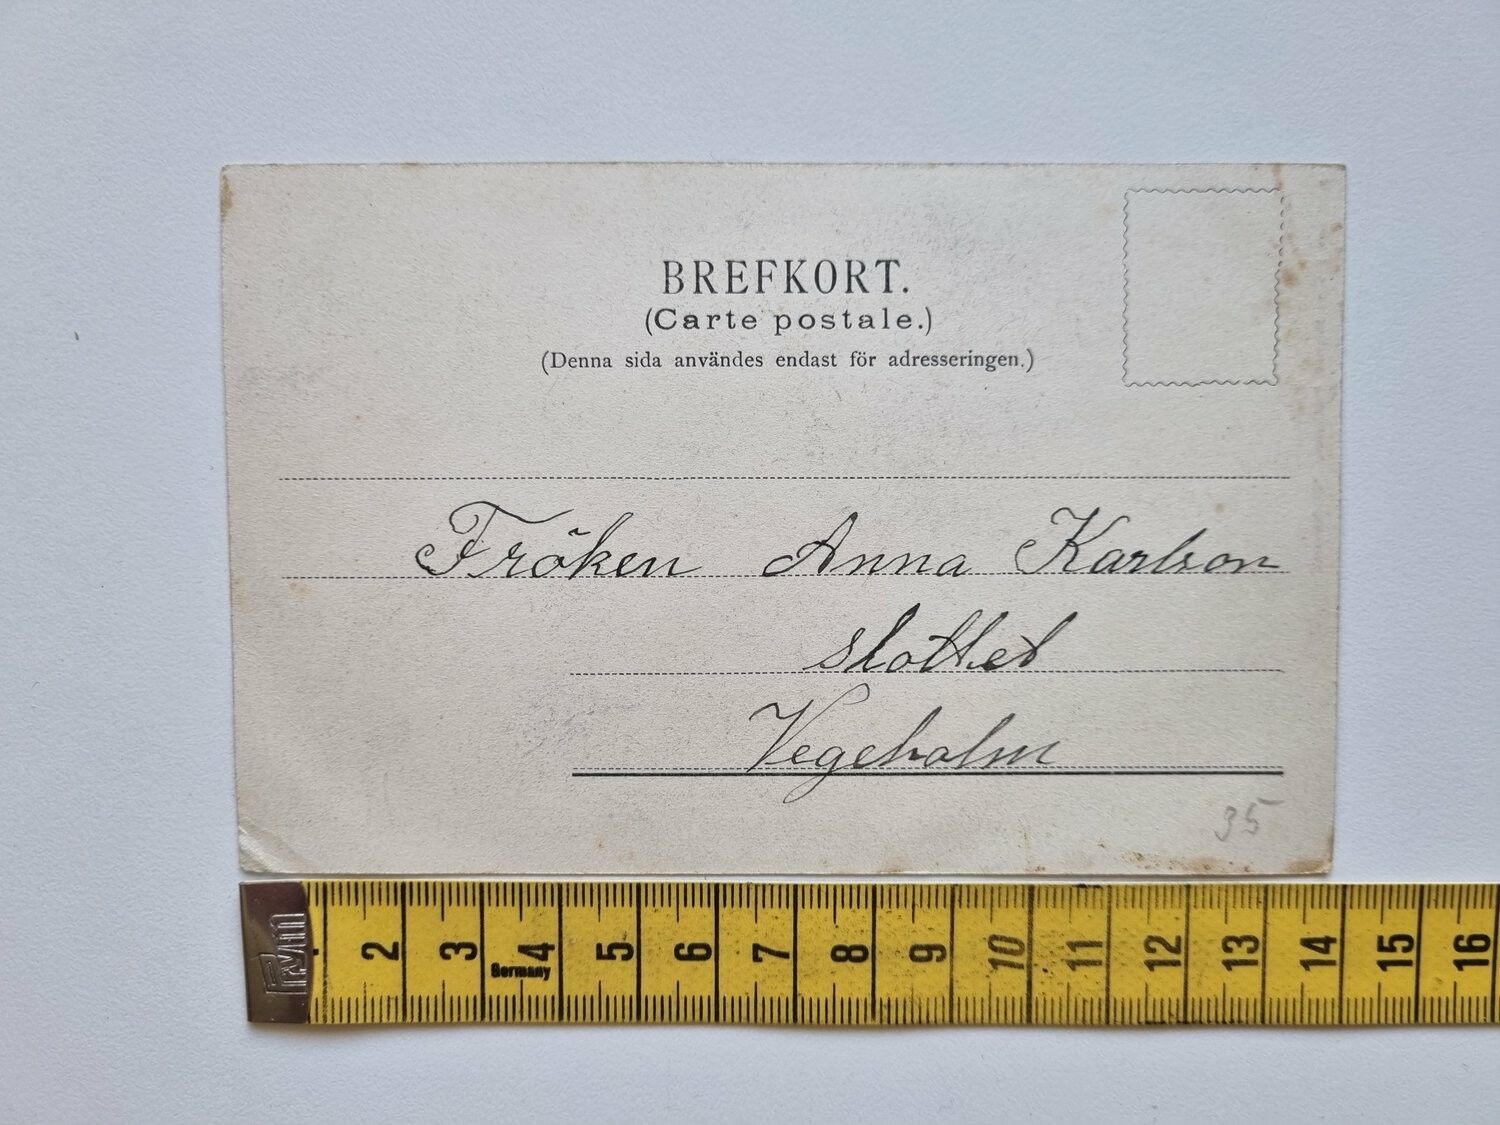 BREFKORT.
(Carte postale.)
(Denna sida användes endast för adresseringen.)
Fröken Anna Karlson
slottet
Vegeholm
35
Prym
2 3 4 5 6 7 8 9 10 11 12 13 14 15 16
Germany